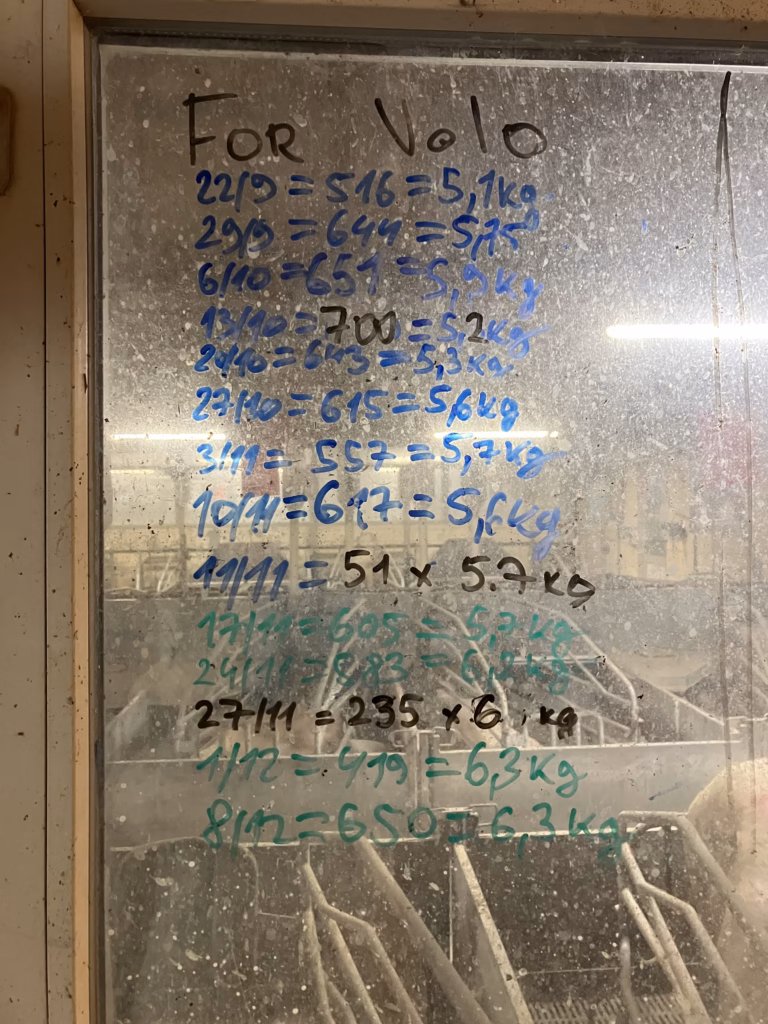 FOR Volo
22/9 = 516 = 5,1kg
29/9 = 644 = 5,75
6/10 = 651 = 5,9kg
13/10 = 700 = 5,2kg
20/10 = 643 = 5,3kg
27/10 = 615 = 5,6kg
3/11 = 557 = 5,7kg
10/11 = 617 = 5,6kg
11/11 = 51 x 5.7kg
17/11 = 605 = 5,7kg
24/11 = 583 = 6,2kg
27/11 = 235 x 6 kg
1/12 = 419 = 6,3kg
8/12 = 650 = 6,3kg